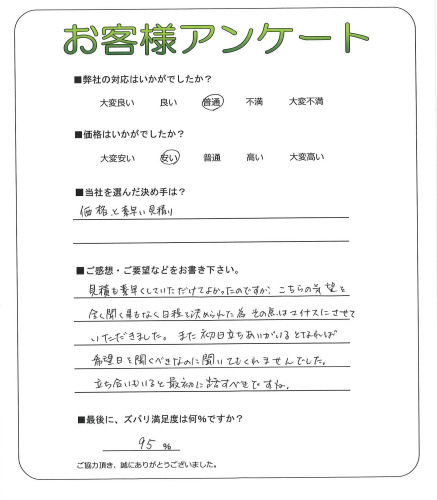 お客様アンケート
■弊社の対応はいかがでしたか？
大変良い　良い　普通　不満　大変不満
■価格はいかがでしたか？
大変安い　安い　普通　高い　大変高い
■当社を選んだ決め手は？
価格と素早い見積り
■ご感想・ご要望などをお書き下さい。
見積も素早くしていただけてよかったのですが、こちらの希望を
全く聞く事もなく日程を決められた為 その点はマイナスにさせて
いただきました。また初日立ちあいがいるとなれば
希望日を聞くべきなのに聞いてもくれませんでした。
立ち合いもいると最初に話すべきですね。
■最後に、ズバリ満足度は何%ですか？
95 %
ご協力頂き、誠にありがとうございました。